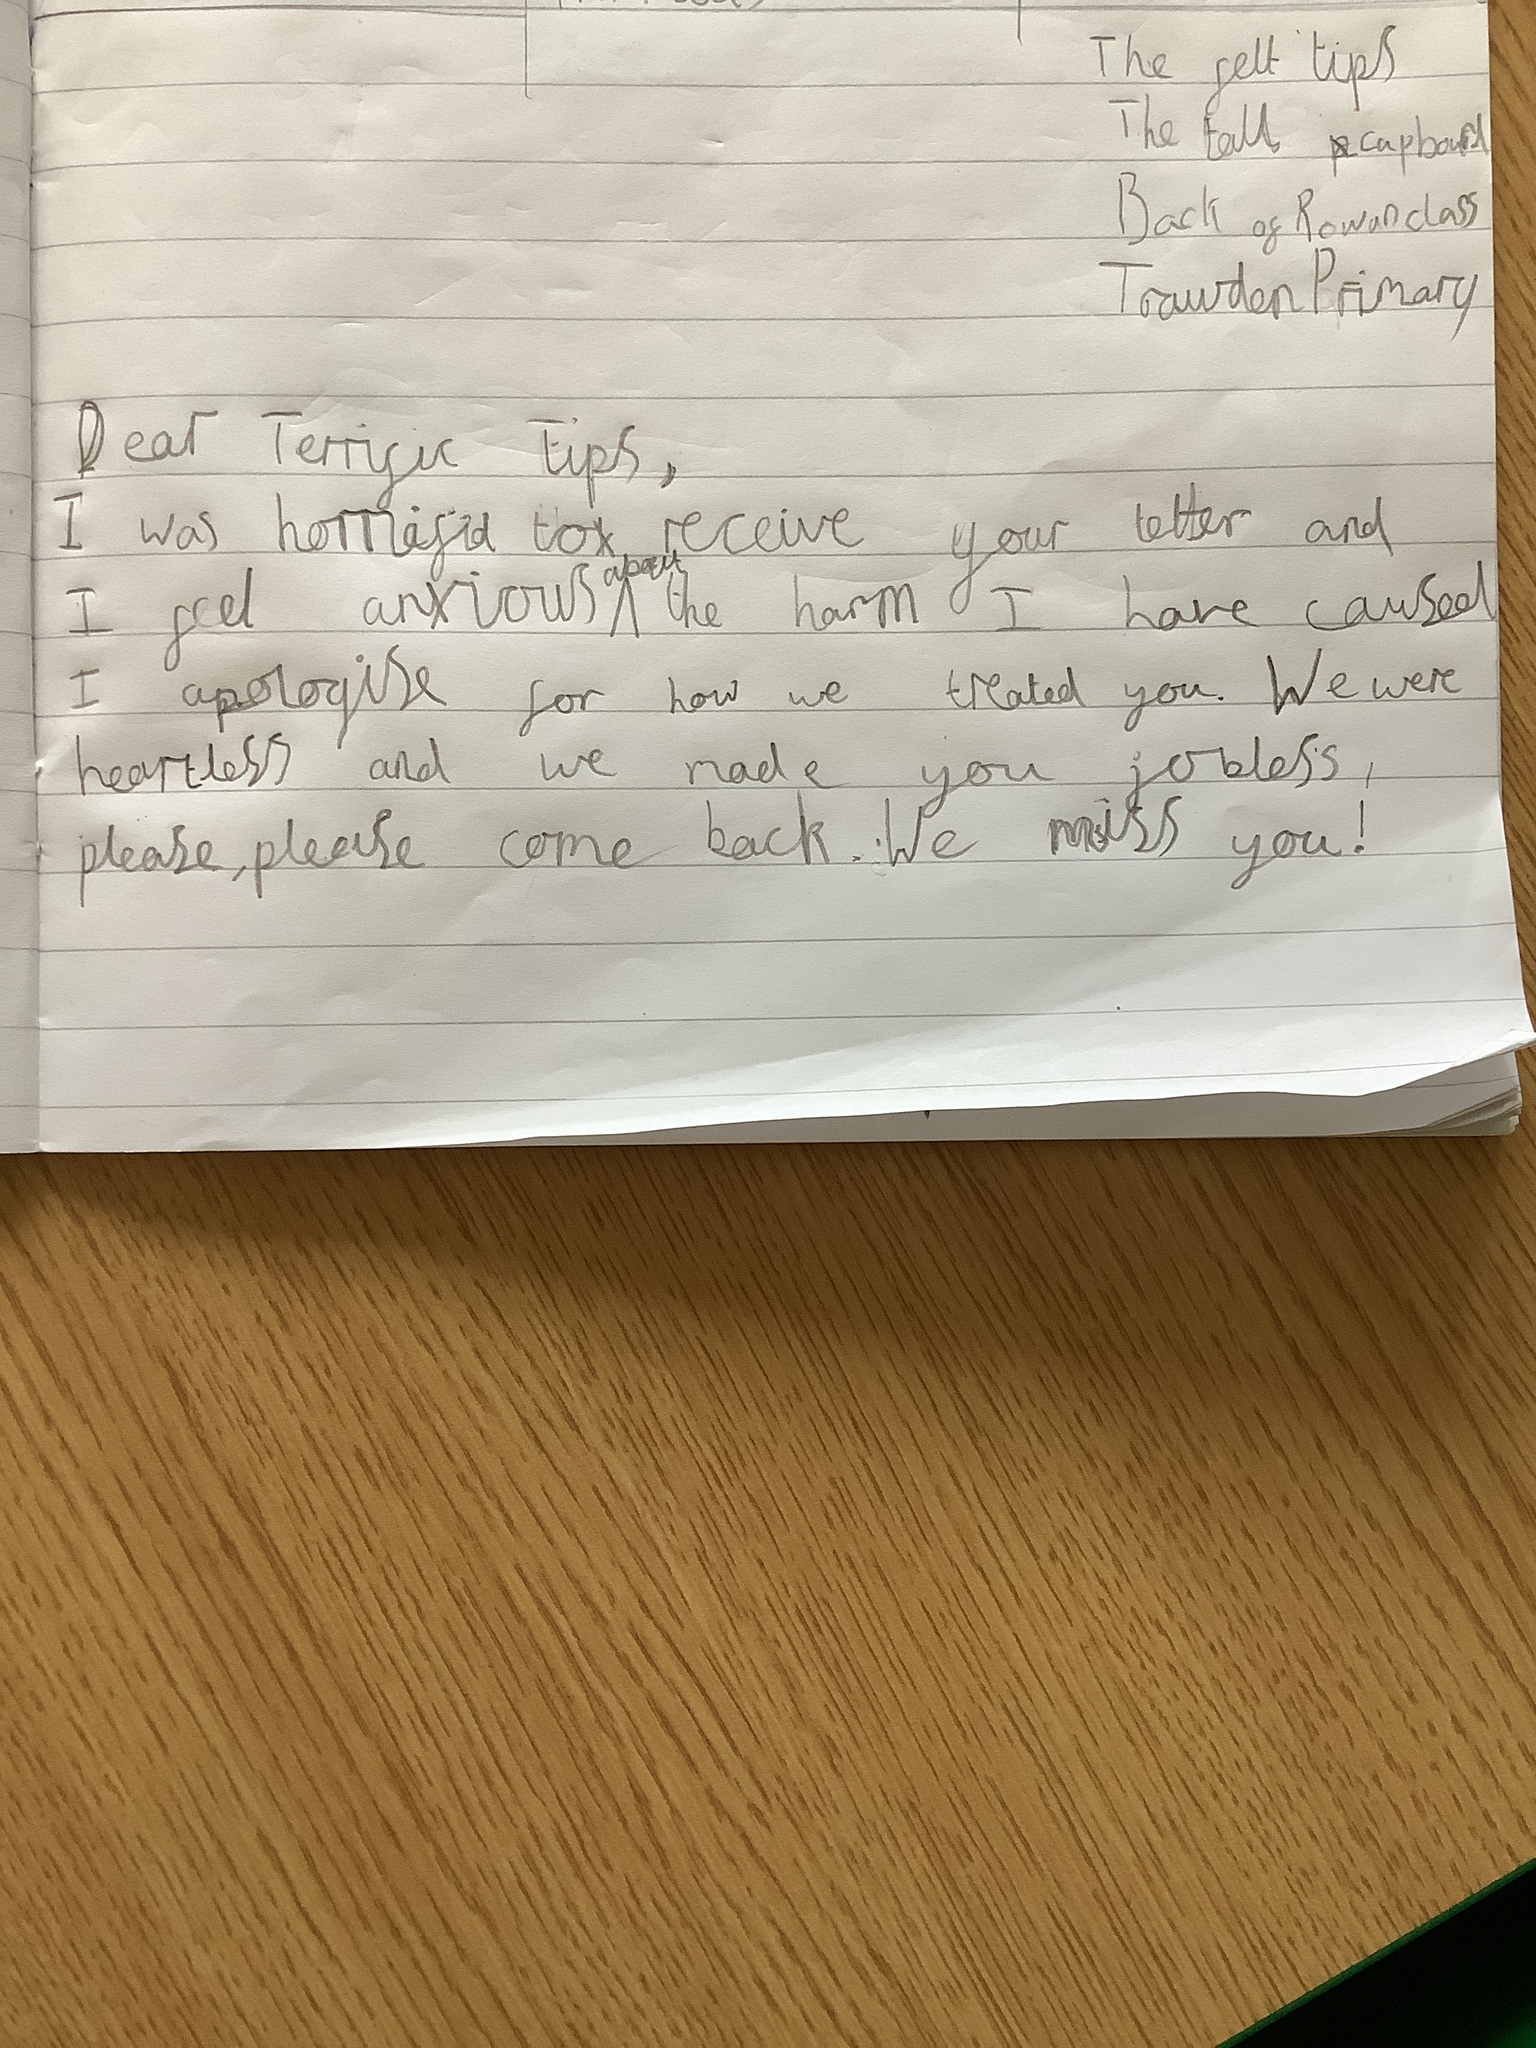 The felt tips
The tall cupboard
Back of Rowan class
Trawden Primary
Dear Terrific Tips,
I was to receive your letter and
about
I feel anxious ^ the harm I have caused
I apologise for how we treated you. We were
heartless and we made you jobless,
please, please come back. We miss you!